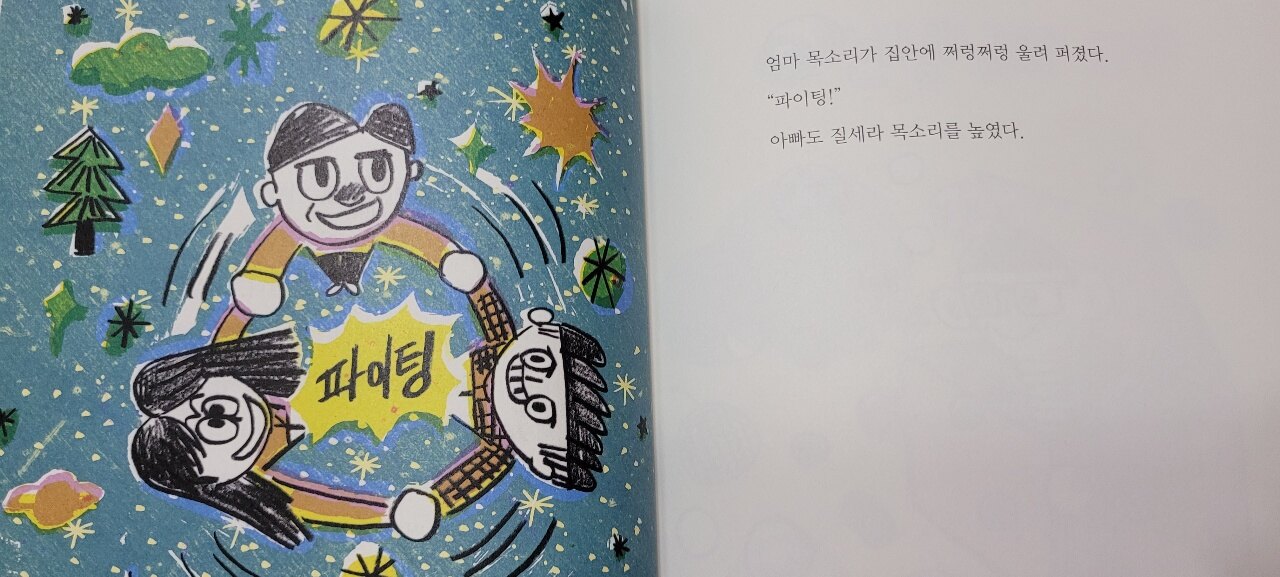 파이팅
엄마 목소리가 집안에 쩌렁쩌렁 울려 퍼졌다.
“파이팅!”
아빠도 질세라 목소리를 높였다.